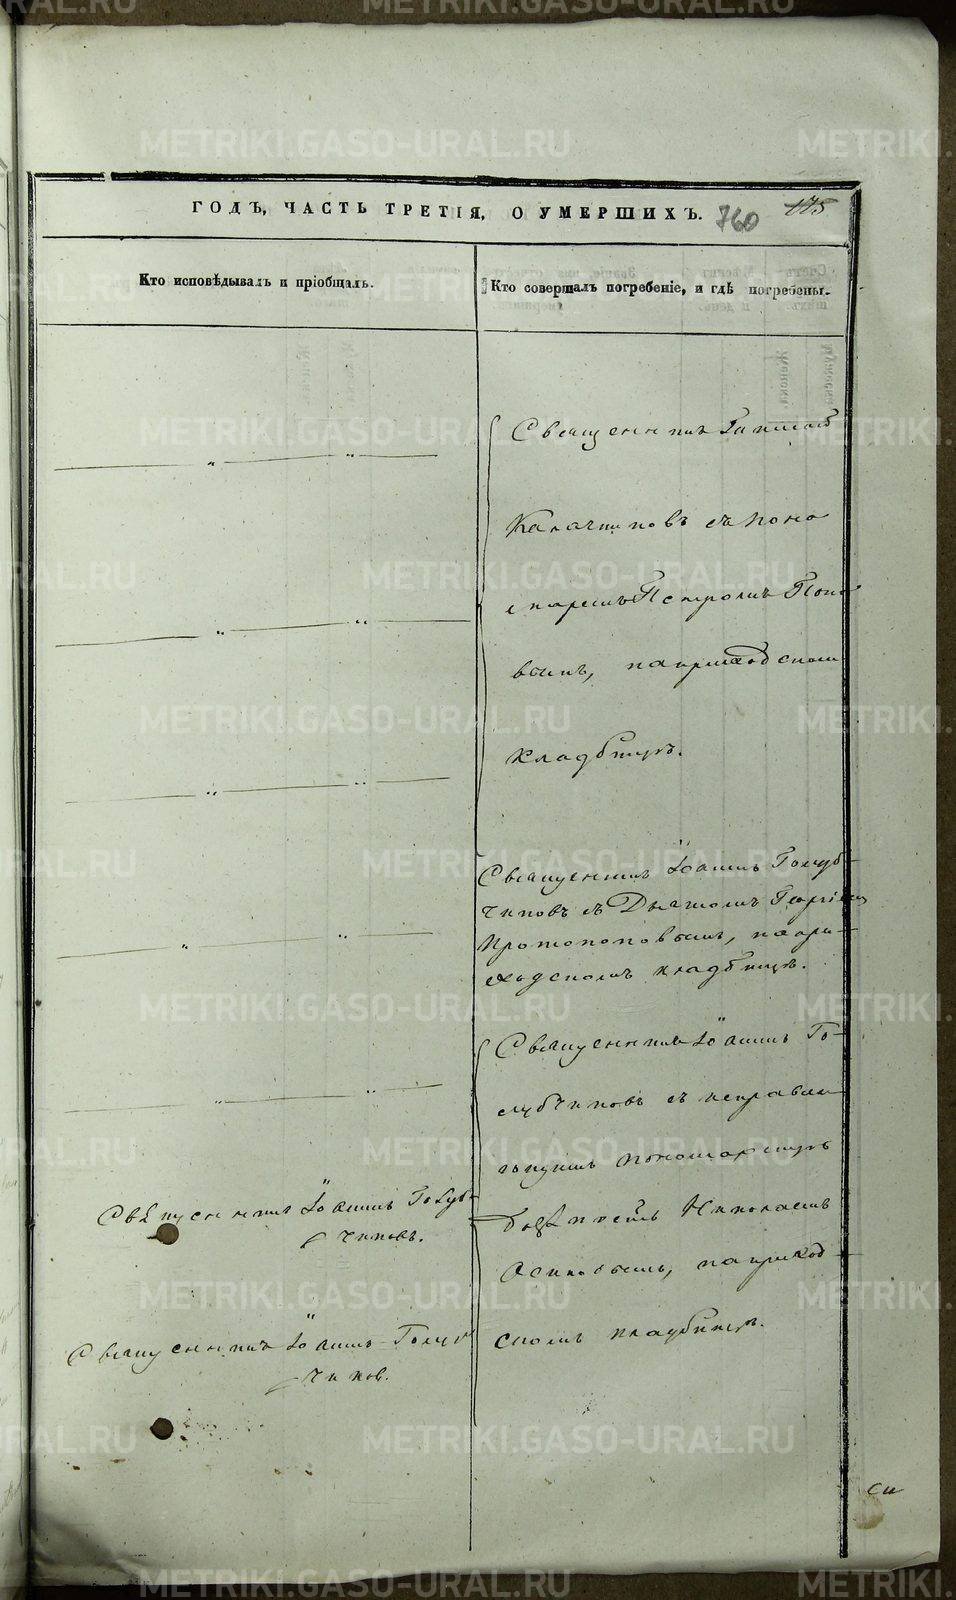 ГОДЪ, ЧАСТЬ ТРЕТІЯ, О УМЕРШИХЪ.
760
175
Кто исповѣдывалъ и пріобщалъ.
Кто совершалъ погребеніе, и гдѣ погребены.
Священникъ
Калачниковъ съ Поно
маремъ Петромъ Попо
вымъ, на приходскомъ
кладбищѣ.
Священникъ Іоаннъ Голуб-
чиковъ съ Дьячкомъ Георгіемъ
Протопоповымъ, на при-
ходскомъ кладбищѣ.
Священникъ Іоаннъ Го-
лубчиковъ съ исправля
ющимъ пономарскую
должность Николаемъ
Осиповымъ, на приход
скомъ кладбищѣ.
Священникъ Іоаннъ Голуб-
чиковъ.
Священникъ Іоаннъ Голуб
чиковъ.
METRIKI.GASO-URAL.RU